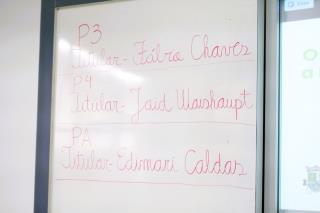 P3
Titular - Fábra Chaves
P4
Titular - Jaid Waishaupt
PA
Titular - Edimari Caldas